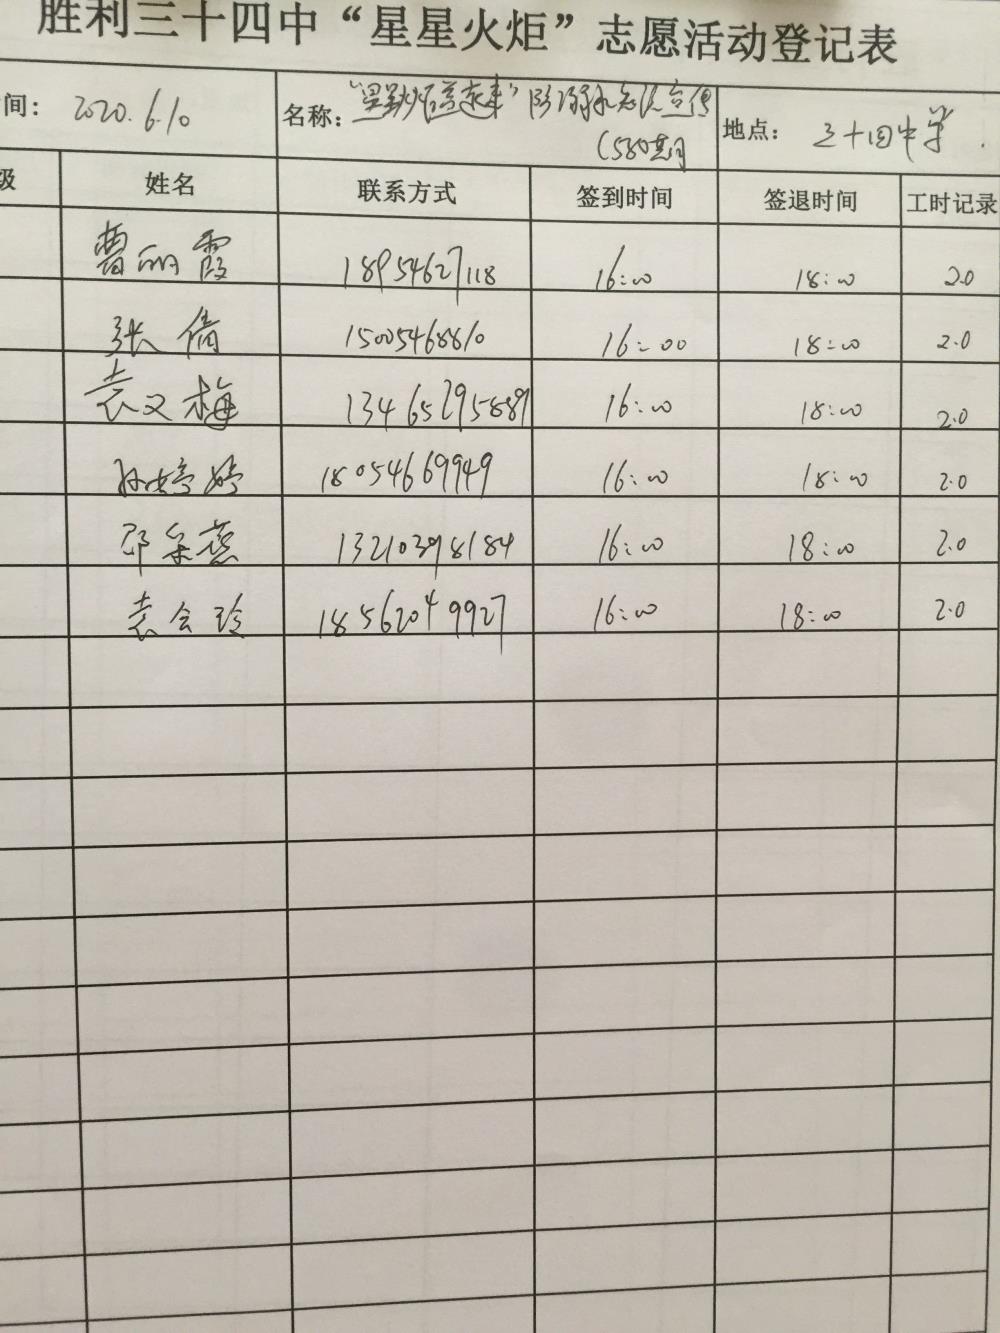 胜利三十四中“星星火炬”志愿活动登记表
间: 2020.6.10 名称: “星星火炬亮起来”防溺水知识宣传 地点: 三十四中学.
(580期)
级 姓名 联系方式 签到时间 签退时间 工时记录
曹丽霞 18954627118 16:00 18:00 2.0
张倩 15005468810 16:00 18:00 2.0
袁义梅 13465295889 16:00 18:00 2.0
孙婷婷 18054669949 16:00 18:00 2.0
邵采燕 13210398184 16:00 18:00 2.0
袁会玲 18562049927 16:00 18:00 2.0